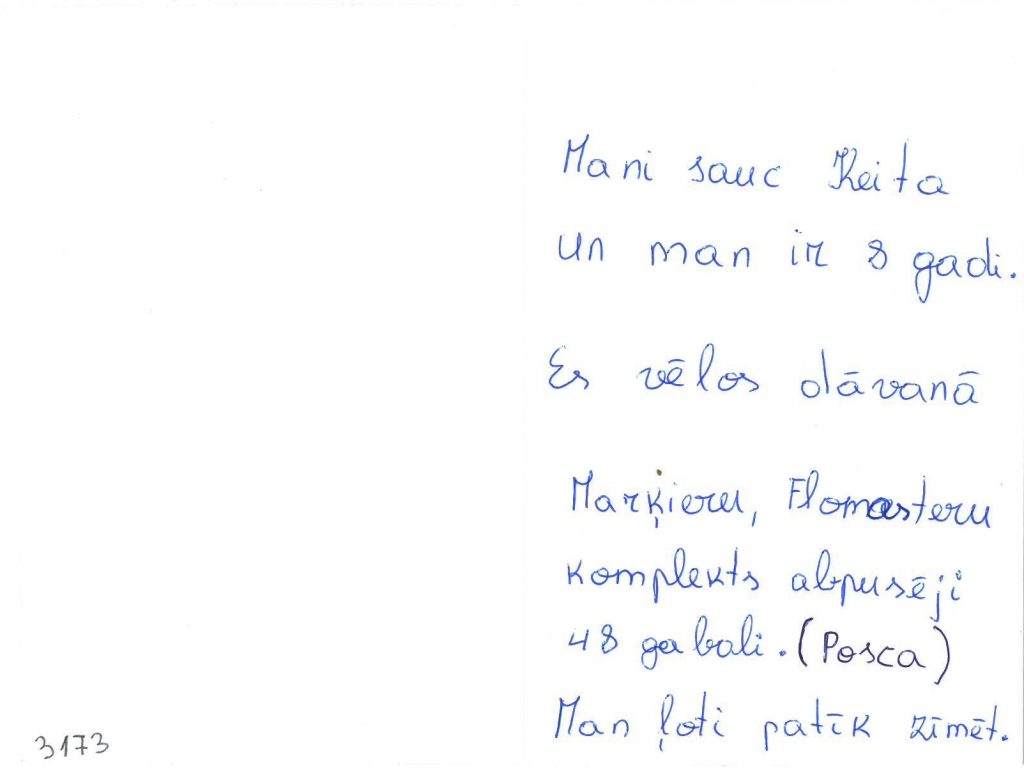 Mani sauc Keita
un man ir 8 gadi.
Es vēlos dāvanā
Marķieru, Flomasteru
komplekts abpusēji
48 gabali. (Posca)
Man ļoti patīk zīmēt.
3173